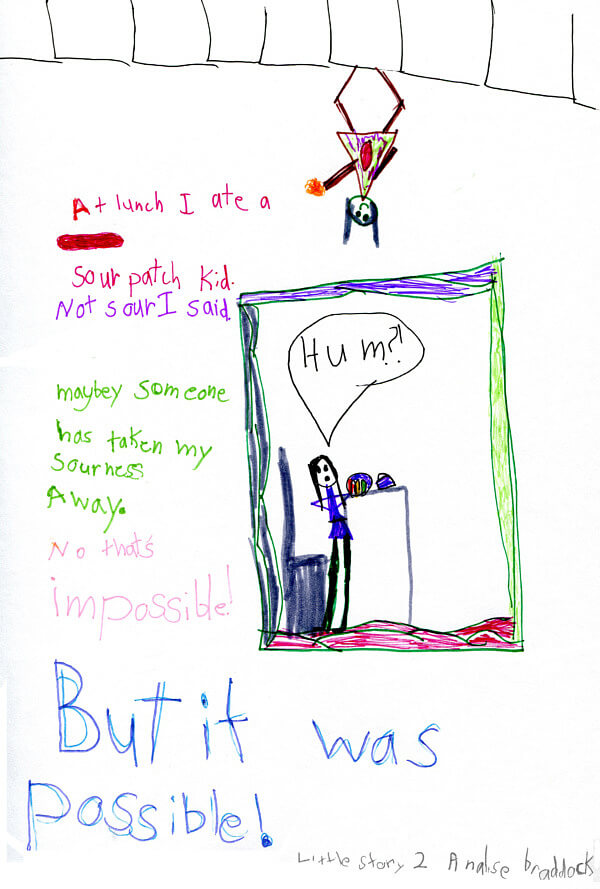 At lunch I ate a
Sour patch kid.
Not sour I said
Hum?!
maybey someone
has taken my
sourness
Away.
No that's
impossible!
But it was
possible!
Little story 2 Analise braddock